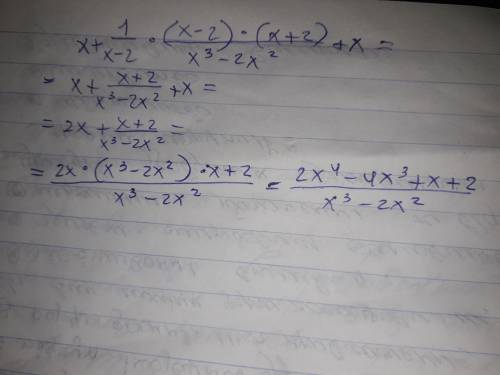 x + 1/(x-2) · (x-2)·(x+2)/(x³-2x²) + x =
= x + (x+2)/(x³-2x²) + x =
= 2x + (x+2)/(x³-2x²) =
= 2x·(x³-2x²)·x+2/(x³-2x²) = (2x⁴-4x³+x+2)/(x³-2x²)